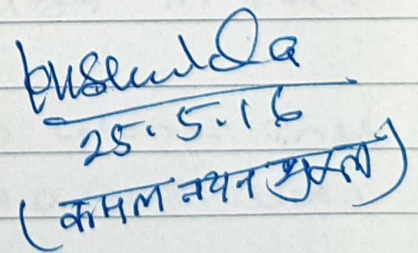 25.5.16
(कमल नयन शुक्ला)